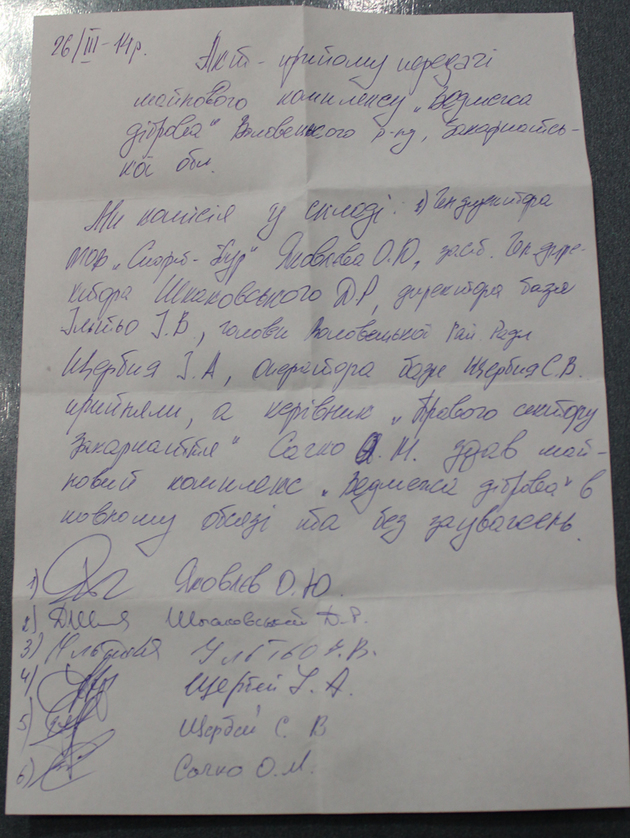 26/III-14р.
Акт-прийому передачі
майнового комплексу „Ведмежа
діброва" Воловецького р-ну, Закарпатсь-
кої обл.
Ми комісія у складі: 1) Ген директора
тоф „Спорт-тур" Яковлєва О.Ю, заст. Ген. дире-
ктора Шпаковського Д.Р, директора бази
Ільтьо І.В, голови Воловецької Рай Ради
Щербия І.А, оператора бази Щербия С.В.
прийняли, а керівник „Правого сектору
Закарпаття" Сачко О.М. здав май-
новий комплекс „Ведмежа діброва" в
повному обсязі та без зауважень.
1) Яковлєв О.Ю.
2) Шпаковський Д.Р.
3) Ільтьо І.В.
4) Щербей І.А.
5) Щербей С. В
6) Сачко О.М.